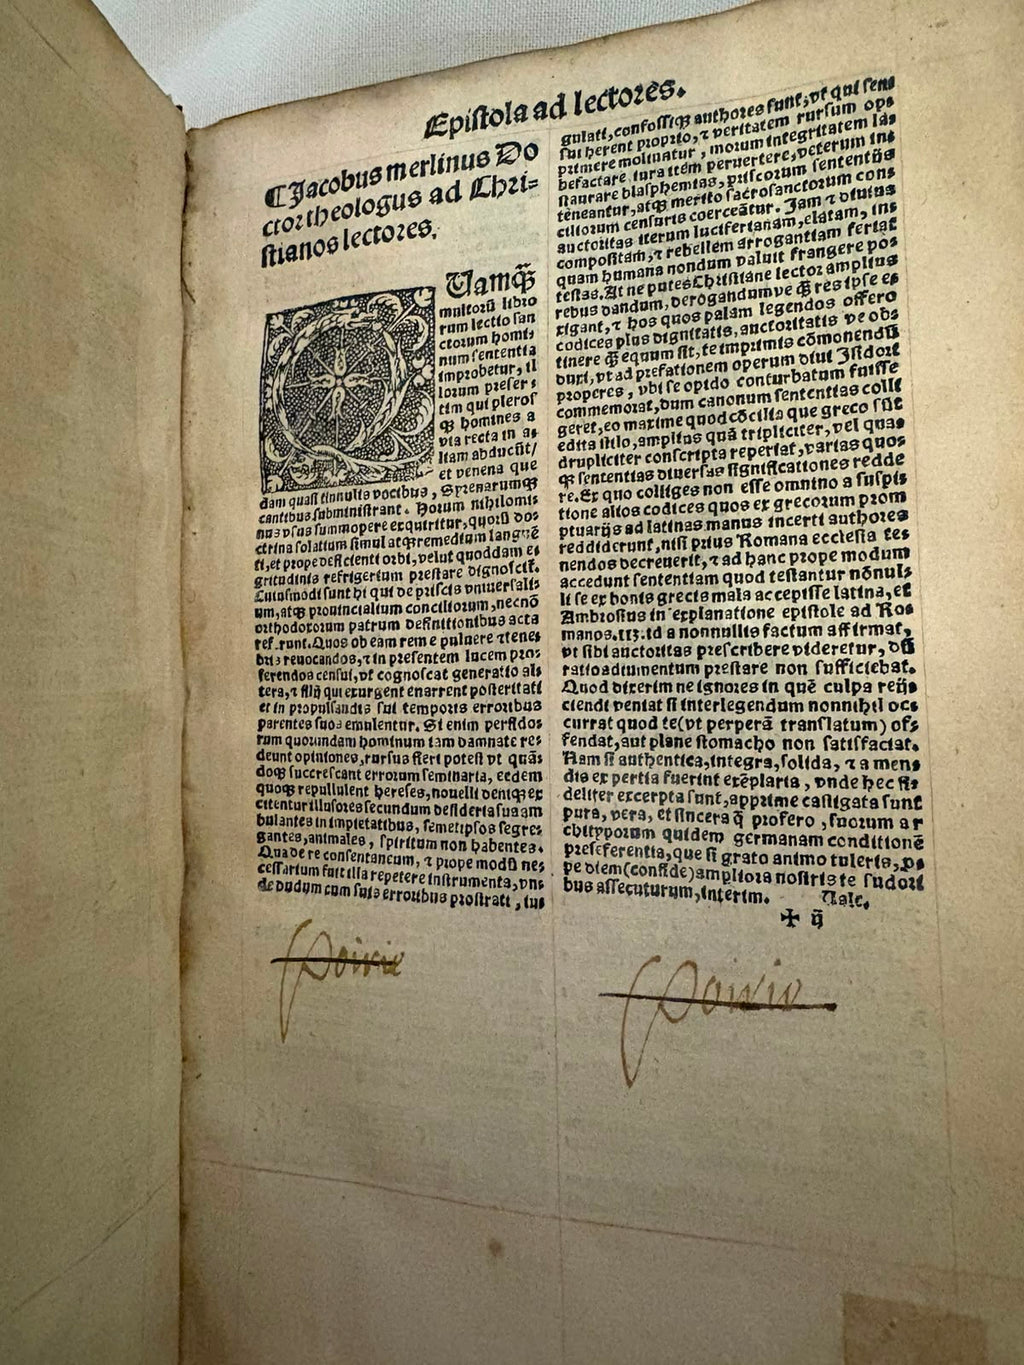 Epistola ad lectores.
¶Jacobus merlinus Do
ctor theologus ad Chri⸗
stianos lectores.
Uamq̃
multorũ libro
rum lectio san
ctorum homi⸗
num sententia
improbetur, il
lorum preser⸗
tim qui pleros
q̃ homines a
via recta in a⸗
liam abducũt/
et venena que
dam quasi tinnulis vocibus, Syrenarumq̃
cantibus subministrant. Horum nihilomi⸗
nus vsus summopere exquiritur, quorũ do⸗
ctrina solatium simul atq̃ remedium languẽ
ti, et prope deficienti orbi, velut quoddam e⸗
gritudinis refrigerium prestare dignoscit̃.
Cuiusmodi sunt hi qui de priscis vniuersali⸗
um, atq̃ prouincialium conciliorum, necnõ
orthodoxorum patrum definitionibus acta
referunt. Quos ob eam rem e puluere ⁊ tene⸗
bris reuocandos, ⁊ in presentem lucem pro⸗
ferendos censui, vt cognoscat generatio al⸗
tera, ⁊ filij qui exurgent enarrent posteritati
et in propulsandis sui temporis erroribus
parentes suos emulentur. Si enim perfido⸗
rum quorundam hominum iam damnate re⸗
deunt opiniones, rursus fieri potest vt quã⸗
doq̃ succrescant errorum seminaria, eedem
quoq̃ repullulent hereses, nouelli deniq̃ ex
citentur illusores secundum desideria sua am
bulantes in impietatibus, semetipsos segre⸗
gantes, animales, spiritum non habentes.
Qua de re consentaneum, ⁊ prope modũ ne⸗
cessarium fuit illa repetere instrumenta, vn⸗
de dudum cum suis erroribus prostrati, iu⸗
gulati, confossiq̃ authores sunt, vt qui sens
sui herent proprio, ⁊ veritatem rursum op⸗
primere moliuntur, morum integritatem la⸗
befactare, iura item peruertere, veterum in⸗
staurare blasphemias, priscorum sententijs
teneantur, atq̃ merito sacrosanctorum con⸗
ciliorum censuris coerceãtur. Jam ⁊ diuina
auctoritas iterum luciferianam, elatam, in⸗
compositam, ⁊ rebellem arrogantiam feriat
quam humana nondum valuit frangere po⸗
testas. At ne putes Christiane lector amplius
rebus dandum, derogandumve q̃ res ipse ex
xigant, ⁊ hos quos palam legendos offero
codices plus dignitatis, auctoritatis ve ob⸗
tinere q̃ equum sit, te imprimis cõmonendũ
duxi, vt ad prefationem operum diui Isidori
properes, vbi se opido conturbatum fuisse
commemorat, dum canonum sententias colli
geret, eo maxime quod cõcilia que greco sũt
edita stilo, amplius quã tripliciter, vel qua⸗
drupliciter conscripta reperiat, varias quos
q̃ sententias diuersas significationes redde
re. Ex quo colliges non esse omnino a suspi⸗
tione alios codices quos ex grecorum prom
ptuarijs ad latinas manus incerti authores
reddiderunt, nisi prius Romana ecclesia te⸗
nendos decreuerit, ⁊ ad hanc prope modum
accedunt sententiam quod testantur nõnul⸗
li se ex bonis grecis mala accepisse latina, et
Ambrosius in explanatione epistole ad Ro⸗
manos.iij. id a nonnullis factum affirmat,
vt sibi auctoritas prescribere videretur, dũ
ratio adiumentum prestare non sufficiebat.
Quod dixerim ne ignores in quẽ culpa reij⸗
ciendi veniat si interlegendum nonnihil oc⸗
currat quod te (vt perperã translatum) of⸗
fendat, aut plane stomacho non satisfaciat.
Nam si authentica, integra, solida, ⁊ a men⸗
dis expertia fuerint exẽplaria, vnde hec fi⸗
deliter excerpta sunt, apprime castigata sunt
pura, vera, et sincera q̃ profero, suorum ar
chityporum quidem germanam conditionẽ
preseferentia, que si grato animo tuleris, pro
pe diem (confide) ampliora nostris te sudori
bus assecuturum, interim. Uale.
✠ ij
Poirie
Poirie